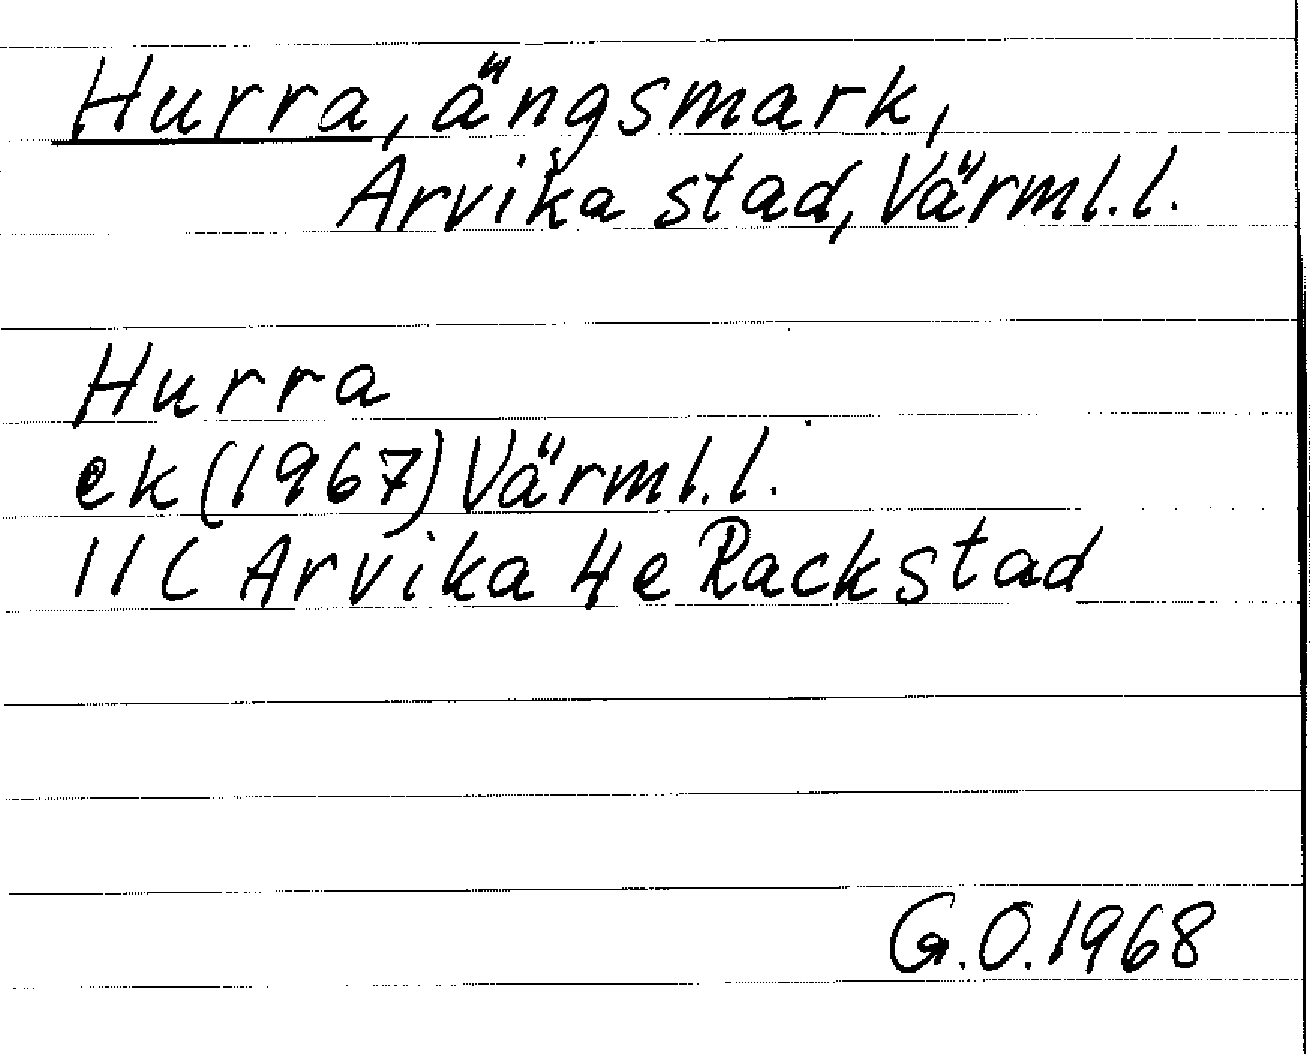 Hurra, ängsmark,
Arvika stad, Värml.l.
Hurra
ek (1967) Värml.l.
11C Arvika 4e Rackstad
G.O. 1968